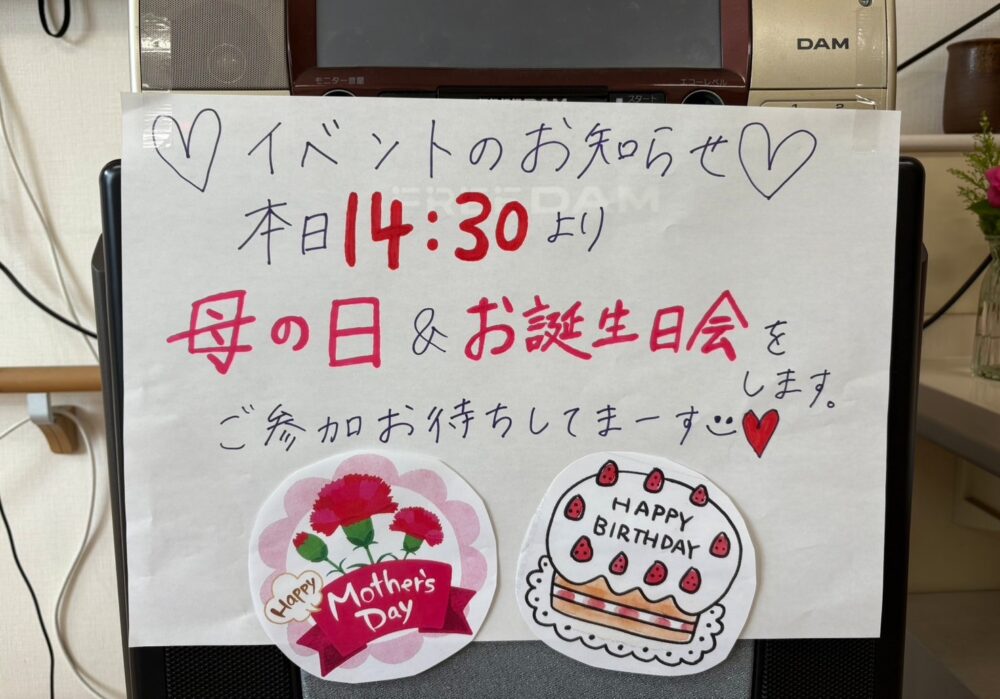 DAM
モニター音量
エコーレベル
スタート
1 2
♡イベントのお知らせ♡
FREEDAM
本日14:30より
母の日&お誕生日会を
します。
ご参加お待ちしてまーす
Happy
Mother's
Day
HAPPY
BIRTHDAY